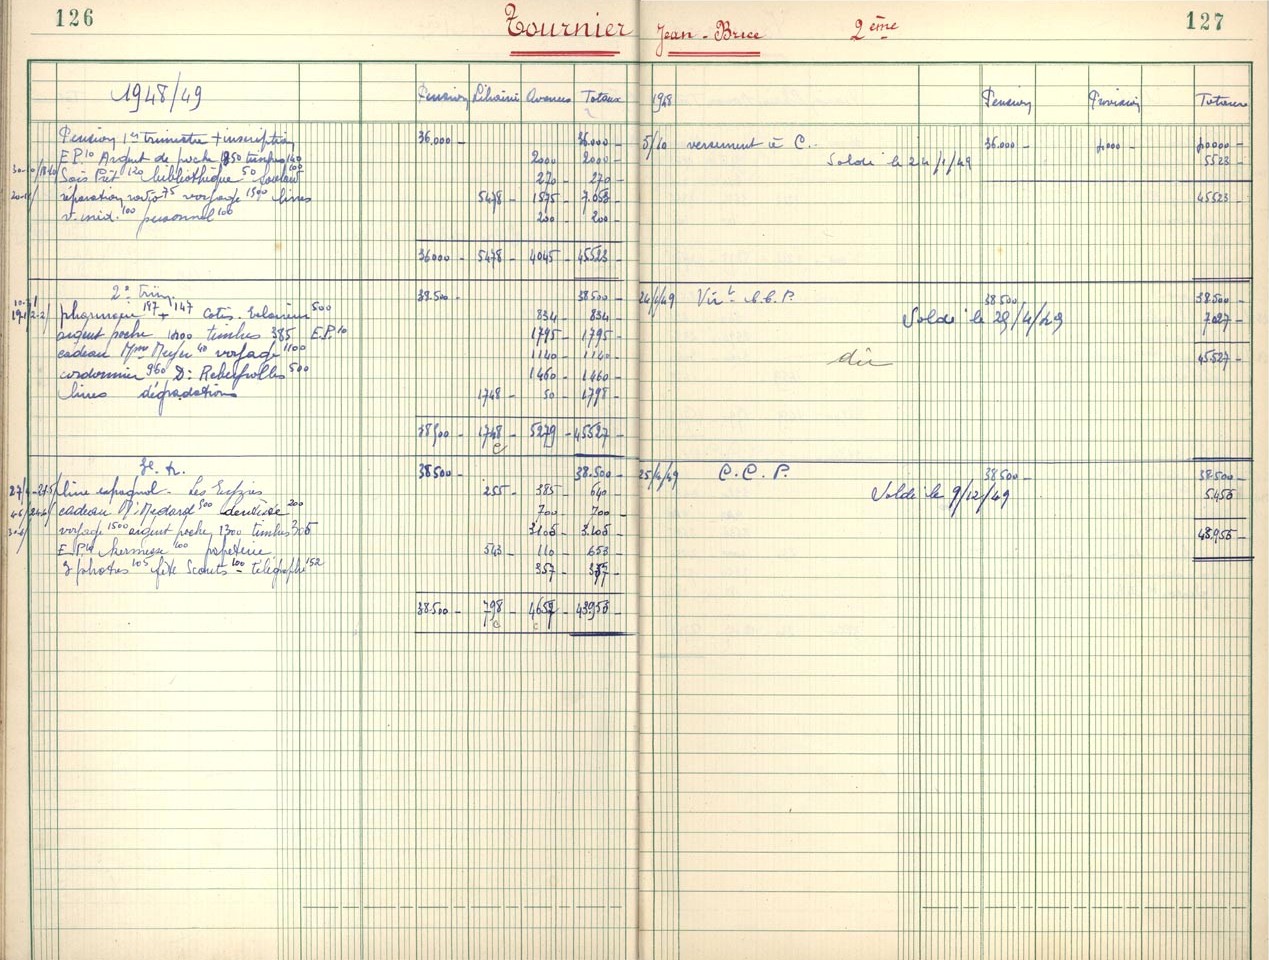 126
Tournier Jean-Brice 2ème
127
1948/49 Pension Librairie Avances Totaux
Pension 1er trimestre + inscription 36.000 - 36.000 -
E.P.10 Argent de poche 1850 timbres 140 2000 - 2000 -
Prêt 120 bibliothèque 50 100 270 - 270 -
réparation 75 voyage 1500 livres 5478 - 1575 - 7.053
v. méd. 100 personnel 100 200 - 200 -
36000 - 5478 - 4045 - 45523 -
2e Trim. 38.500 - 38500 -
pharmacie 187 + 147 Cotis. Eclaireur 500 834 - 834 -
argent poche timbres 385 E.P.10 1795 - 1795 -
cadeau Mme 40 voyage 1100 1140 - 1140 -
cordonnier 960 500 1460 - 1460 -
livres dégradations 1748 - 50 - 1798 -
38500 - 1748 - 5279 - 45527 -
3e tr. 38500 - 38.500 -
livre espagnol 255 - 385 - 640 -
cadeau 500 200 700 - 700 -
voyage 1500 argent poche 1300 timbres 305 3105 - 3.105 -
E.P.10 kermesse 100 papeterie 543 - 110 - 653 -
3 photos 105 fête Scouts 100 - télégraphe 152 357 - 357 -
38.500 - 798 - 4657 - 43955 -
1948 Pension Provision Totaux
5/10 versement à C. 36.000 - 4000 - 40000 -
Soldé le 24/1/49 5523 -
45523 -
24/1/49 Virt C.C.P. 38500 - 38500 -
Soldé le 29/4/49 7027 -
dû 45527 -
25/4/49 C.C.P. 38500 - 38500 -
Soldé le 9/12/49 5.455
43,955 -